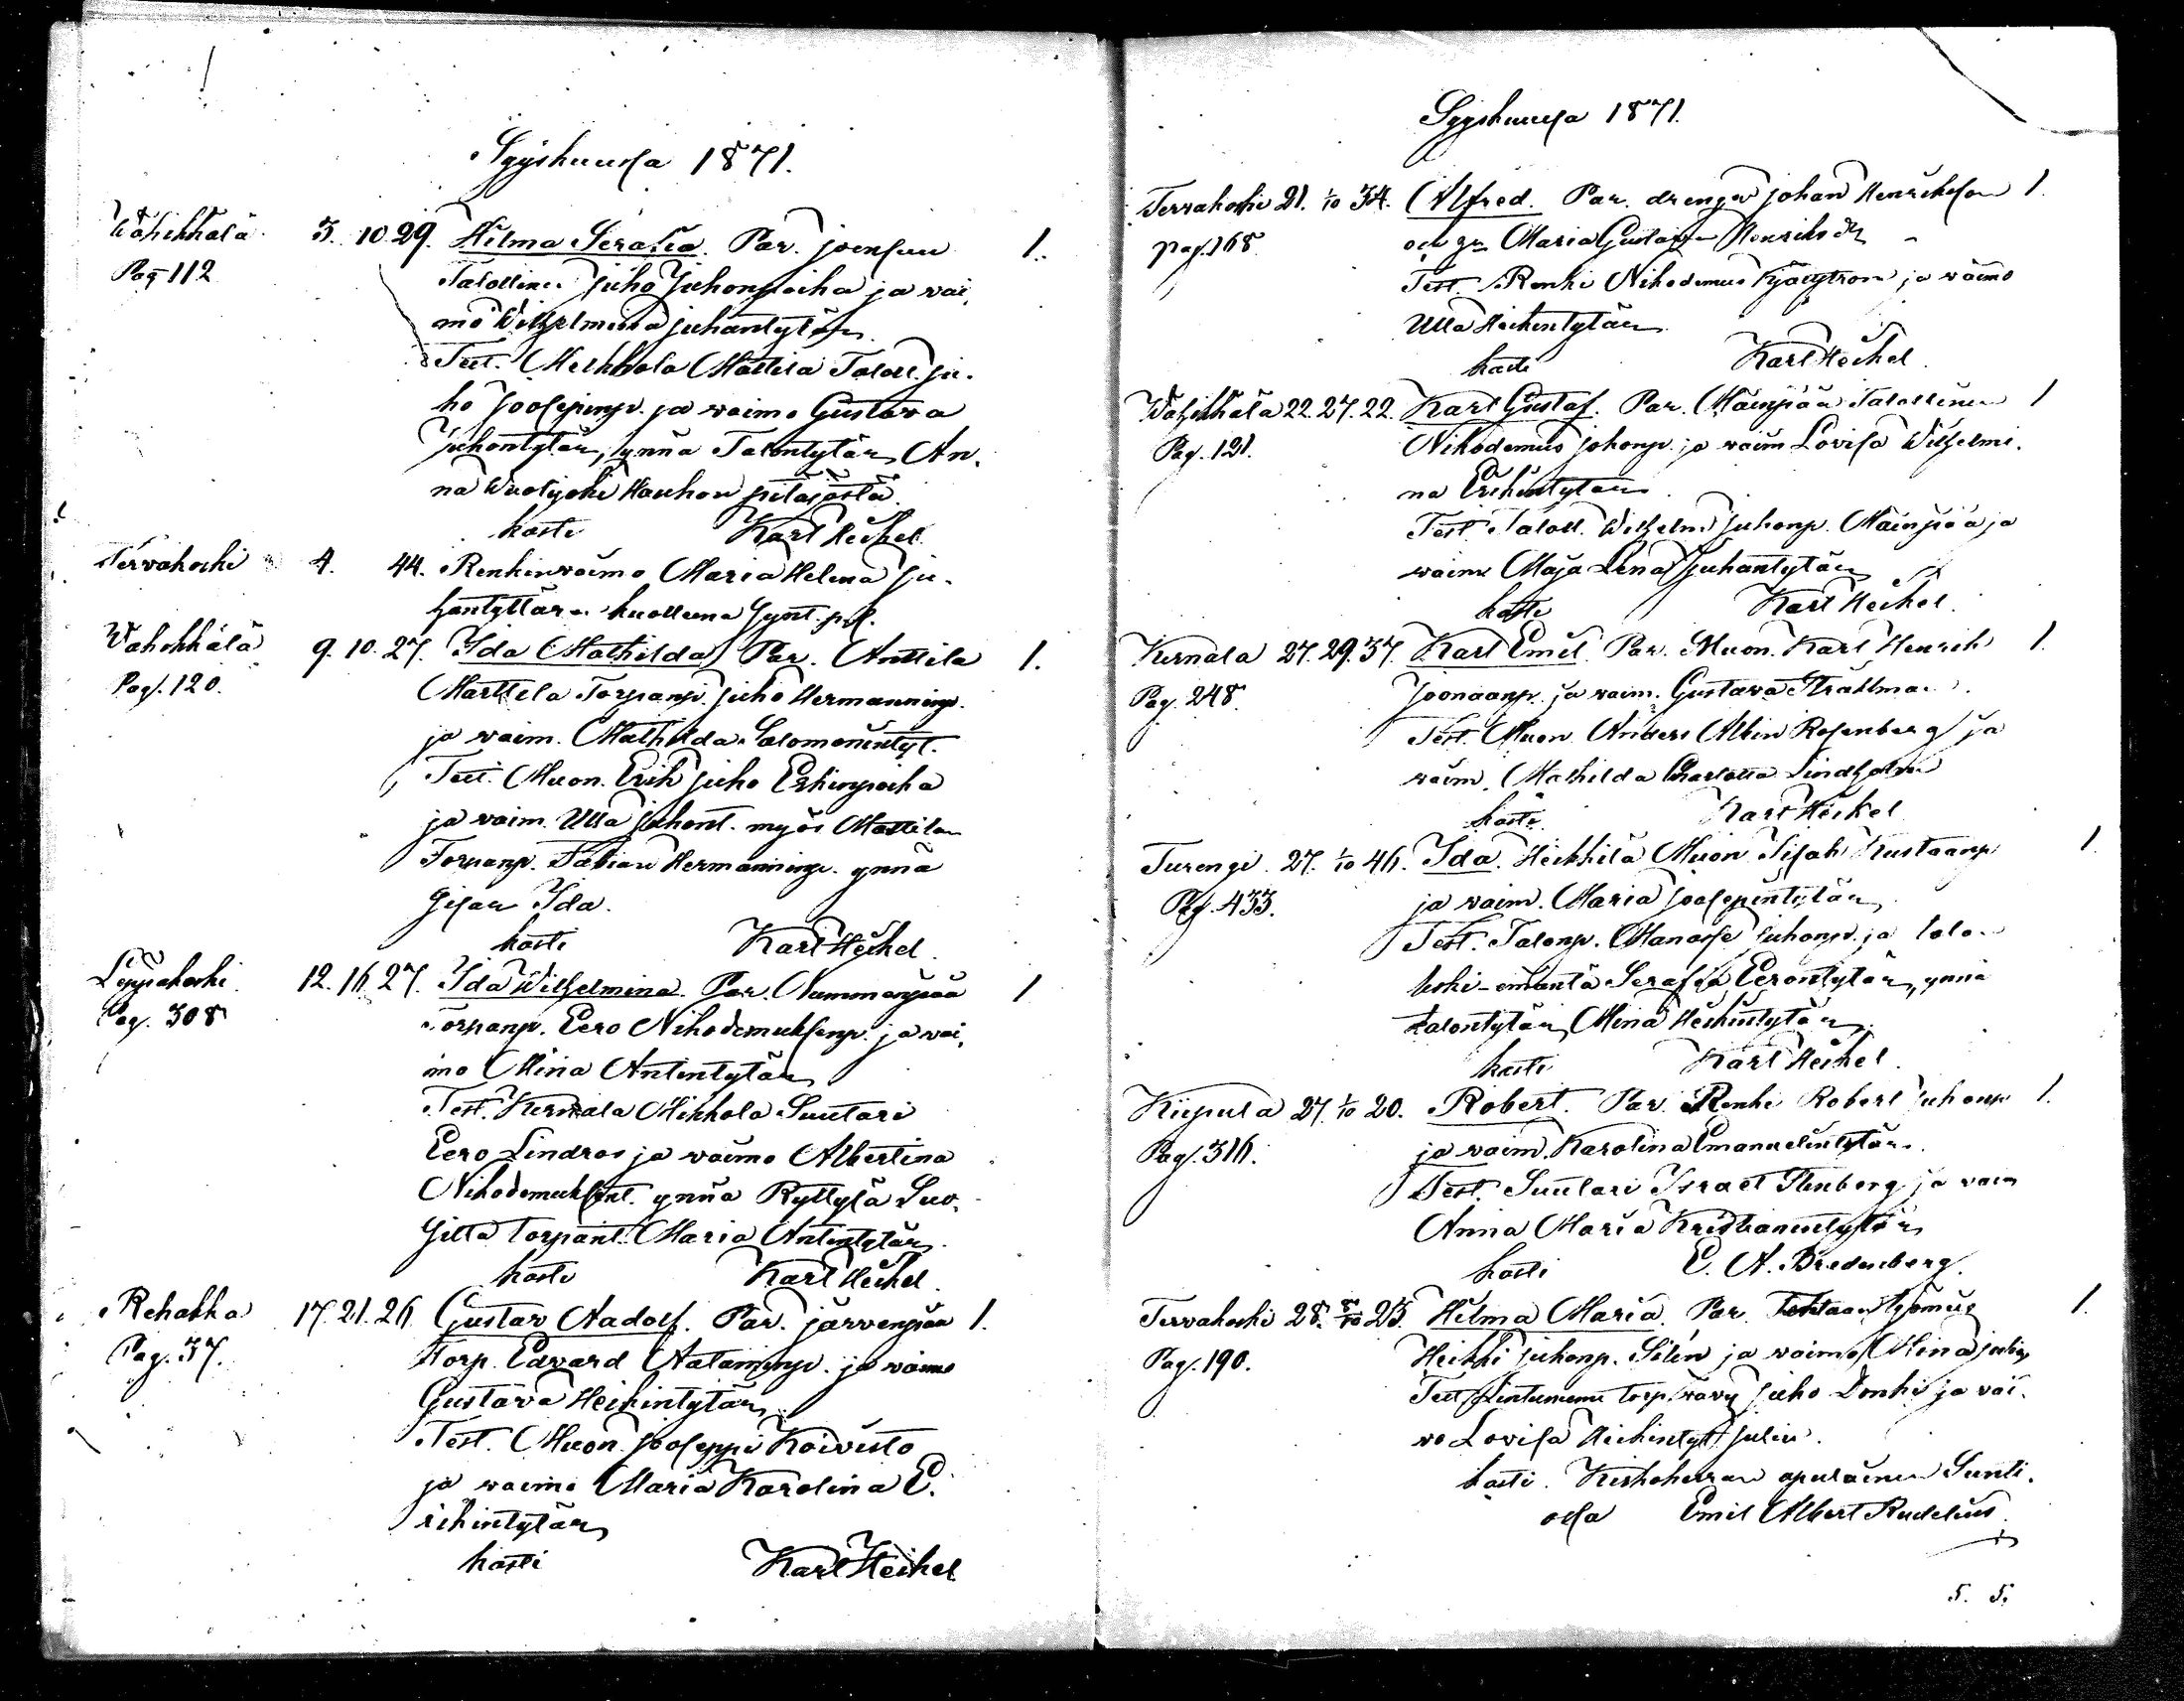 Syyskuussa 1871.
Wähikkälä 3. 10. 29. Hilma Serafia. Par. Joensuu 1.
Pag 112 Talollinen Juho Juhonpoika ja wai,
mo Wilhelmina Juhantytär
Test. Merkkola Mattila Taloll. Ju-
ho Joosepinp. ja waimo Gustava
Juhontytär, ynnä Talontytär An-
na Wuotjoki Hauhon pitäjästä.
kasti Karl Heikel
Tervakoski 4. 44. Renkinwaimo Maria Helena Ju-
hantyttären kuolleena synt.
Wähikkälä 9. 10. 27. Ida Mathilda Par. Anttila 1.
Pag. 120. Marttila Torpanp. Juho Hermanninp.
ja waim. Mathilda Salomonintyt.
Test. Muon. Erik Juho Erkinpoika
ja waim. Ulla Juhont. myös Mattilan
Torpanp. Fabian Hermanninp. ynnä
Ida.
kasti Karl Heikel
Leppäkoski 12. 16. 27. Ida Wilhelmina. Par. Nummenpää 1
Pag. 308 Torpanp. Eero Nikodemuksenp. ja wai,
mo Mina Antintytär
Test. Kernala Mikkola Suutari
Eero Lindros ja waimo Albertina
Nikodemuksent. ynnä Ryttylä Suo-
torpant. Maria Antintytär
kasti Karl Heikel
Rehakka 17. 21. 26. Gustav Aadolf. Par. Järvenpää 1.
Pag. 37. Torp. Edvard Aataminp. ja waimo
Gustava Heikintytär
Test. Muon. Jooseppi Koivisto
ja waimo Maria Karolina E-
rikintytär
kasti Karl Heikel
Syyskuussa 1871.
Tervakoski 21. 1/10 34. Alfred. Par. drengen Johan Henriksson 1.
pag. 168 Maria Gustava Henriksdr
Test. Renki Nikodemus ja waimo
Ulla Heikintytär
kasti Karl Heikel
Wähikkälä 22. 27. 22. Karl Gustaf. Par. Mäenpään Talollinen 1
Pag. 121. Nikodemus Johonp. ja waim Lovisa Wilhelmi-
na Erikintytär
Test. Taloll. Wilhelm Juhonp. Mäenpää ja
waimo Maja Lena Juhantytär
kasti Karl Heikel.
Kernala 27. 29. 37. Karl Emil. Par. Muon. Karl Henrik 1.
Pag. 248. Joonaanp. ja waim. Gustava Stråhlman.
Test. Muon Anders Albin Rosenberg ja
waim. Mathilda Charlotta Lindholm
kasti. Karl Heikel
Turengi 27. 1/10 46. Ida. Heikkilä Muon Kustaanp 1.
Pag. 433. ja waim. Maria Joosepintytär
Test. Talonp. Manasse Juhonp. ja talon
emäntä Serafia Eerontytär, ynnä
talontytär Mina Heikintytär
kasti Karl Heikel.
Kiipula 27. 1/10 20. Robert. Par. Renki Robert Juhonp 1.
Pag. 316. ja waim. Karolina Emanuelintytär.
Test. Suutari Israel Stenberg ja waim
Anna Maria Kristianintytär
kasti E. A. Bredenberg.
Tervakoski 28. 8/10 23. Hilma Maria. Par. 1.
Pag. 190. Heikki Juhonp. Silén ja waimo Mina
Test. torp. wävy Juho Donki ja wai-
wo Lovisa Heikintyt Julin.
kasti. Kirkkoherran apulainen Sunti.
ossa Emil Albert Rudelius.
5. 5.